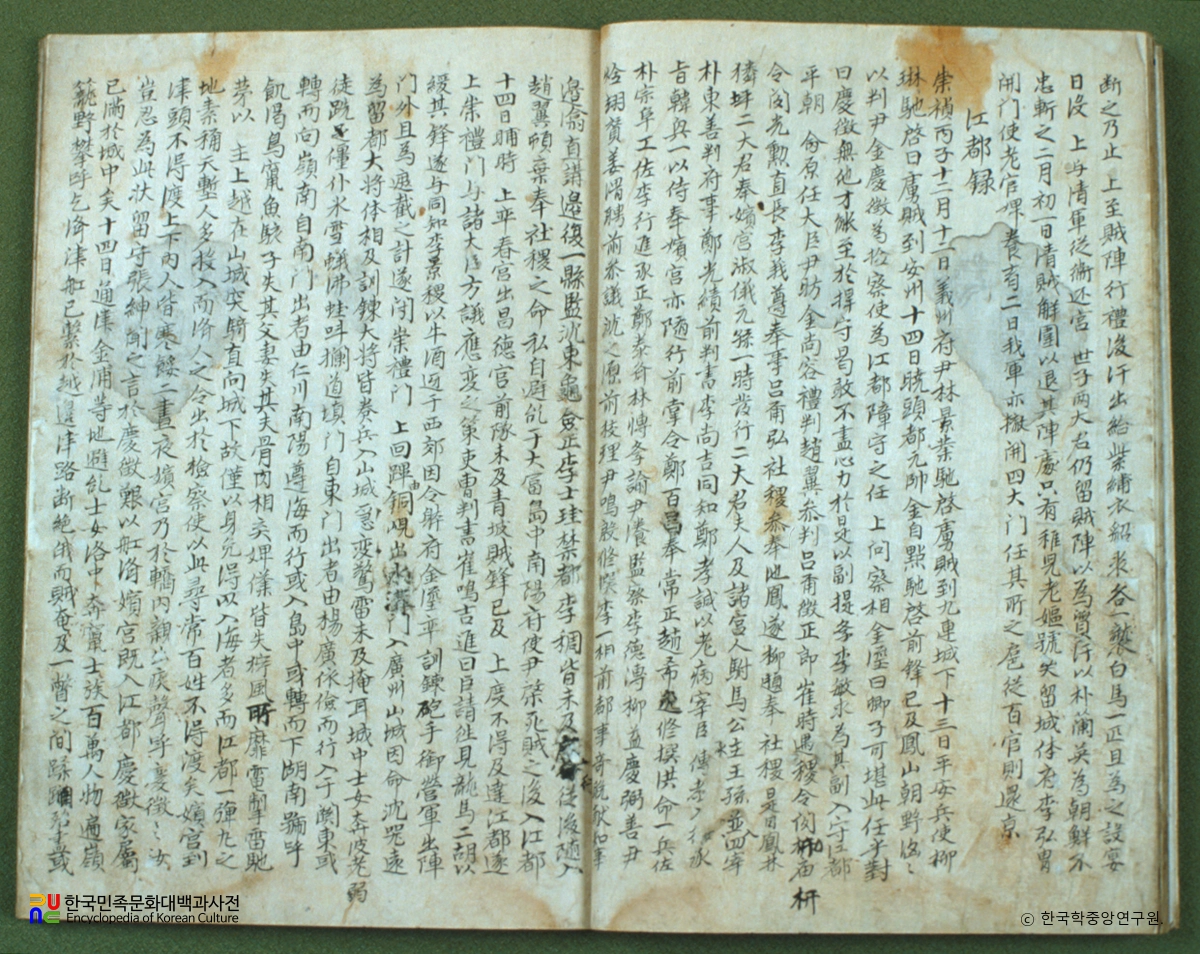 断之乃止 上至賊陣行禮後汗出給紫繡衣紹裘各一襲白馬一匹且為之設宴
日沒 上与清軍從衛还宮 世子两大君仍留賊陣以為質汗以朴䕶英為朝鮮不
忠斬之二月初一日清賊解圍以退其陣處只有稚児老嫗號哭留城体府李弘胄
開门使老官婢養育二日我軍亦撤開四大门任其所之扈從百官則還京
江都録
崇禎丙子十二月十二日義州府尹林景業馳啓虜賊到九連城下十三日平安兵使柳
琳馳啓曰虜賊到安州十四日暁頭都元帥金自點馳啓前鋒已及鳳山朝野洶〻
以判尹金慶徵為檢察使為江都障守之任 上问察相金瑬曰卿子可堪此任乎對
曰慶徵無他才能至於捍守曷敢不盡心力於是以副提学李敏求為其副入守江都
平朝 命原任大臣尹昉金尚容禮判趙翼参判吕甬徵正郎崔時遇稷令閔
令閔光勳直長李義遵奉事吕甬弘社稷参奉池鳳遂柳 奉 社稷是日鳳林
獜坪二大君奉嬪宮淑儀元孫一時發行二大君夫人及諸宮人駙馬公主王孫並四宰
朴東善判府事鄭光績前判書李尚吉同知鄭孝誠以老病宰臣 入
旨韓興一以侍奉嬪宮亦随行前掌令鄭百昌奉常正趙希進修撰洪命一兵佐
朴宗阜工佐李行進承正鄭泰齊林㙛李諭尹 監察李德溥柳益慶弼善尹
烇翊賛姜渭聘前参議沈之源前校理尹鳴殷修撰李一相前都事
邊倫直講邊復一縣監沈東龜佥正李士珪禁都李稠皆未及 從後随入
趙翼頉棄奉社稷之命私自避乱于大富島中南陽府使尹棨死賊之後入江都
十四日晡時 上率春宮出昌德宮前隊未及青坡賊鋒已及 上度不得及達江都遂
上崇禮门与諸大臣方議應变之策吏曹判書崔鳴吉進曰臣請徃見龍馬二胡以
緩其鋒遂与同知李景稷以牛酒迎于西郊因令觧府金瑬率訓鍊砲手御營軍出陣
门外且為遮截之計遂閉崇禮门 上回蹕由銅峴出水溝门入廣州山城因命沈器遠
為留都大将体相及訓鍊大将皆奏兵入山城 変驚雷未及掩耳城中士女奔波老弱
徒跣 僵仆氷雪蟻沸蛙叫攔道塡门自東门出者由楊廣依險而行入于関東或
轉而向嶺南自南门出者由仁川南陽遵海而行或入島中或轉而下湖南號呼
飢渇鳥竄魚駭子失其父妻失其夫骨肉相棄婢僕皆失 風所靡雷割雷馳
茅以 主上越在山城突騎直向城下故僅以身免得以入海者多而江都一彈丸之
地素稱天塹人多投入而濟人之令出於檢察使以此尋常百姓不得渡矣嬪宮到
津頭不得渡上下内人皆寒餒二晝夜嬪宮乃於轎内親出疾聲呼慶徵〻汝
豈忍為此状留守張紳 之言於慶徵艱以舡濟嬪宮既入江都慶徵家屬
已満於城中矣十四日通津金浦等地避乱士女洛中奔竄士族百萬人物遍嶺
籠野攀呼乞濟津舡已繫於越邊津路断絶俄而賊奄及一瞥之间
한국민족문화대백과사전
Encyclopedia of Korean Culture
ⓒ 한국학중앙연구원